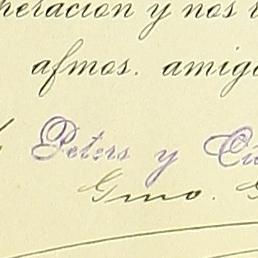 peracion y nos
afmos. amig
Peters y Cí
Gmo.